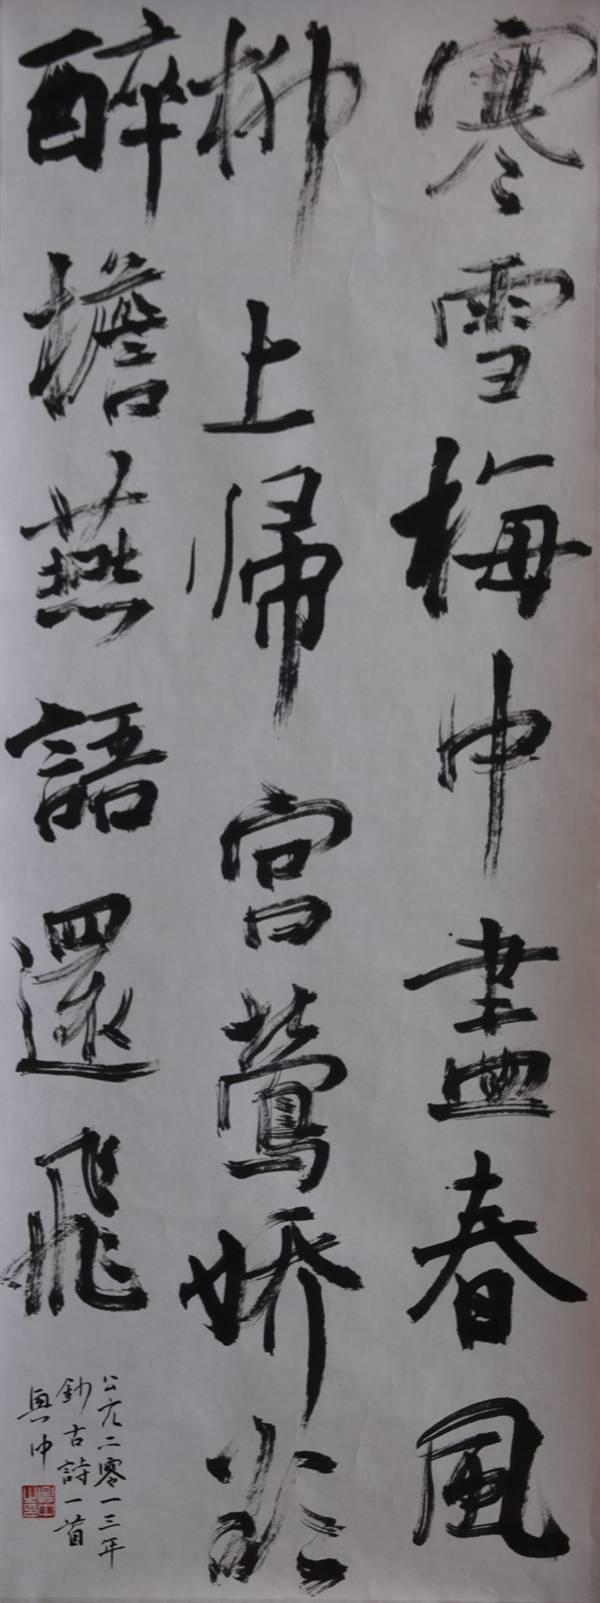 寒雪梅中盡春風
柳上帰宮鶯娇欲
醉檐燕語還飛
公元二零一三年
鈔古詩一首